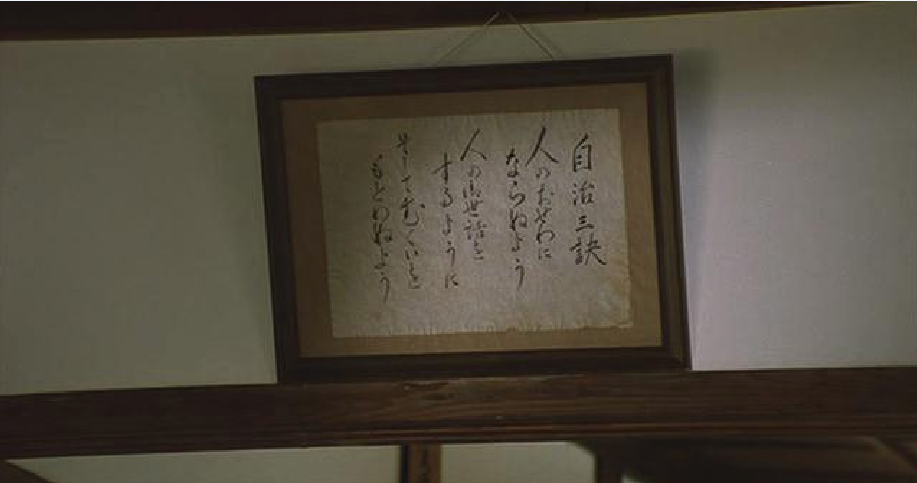 自治三訣
人のおせわに
ならぬよう
人の御世話を
するように
そしてむくいを
もとめぬよう